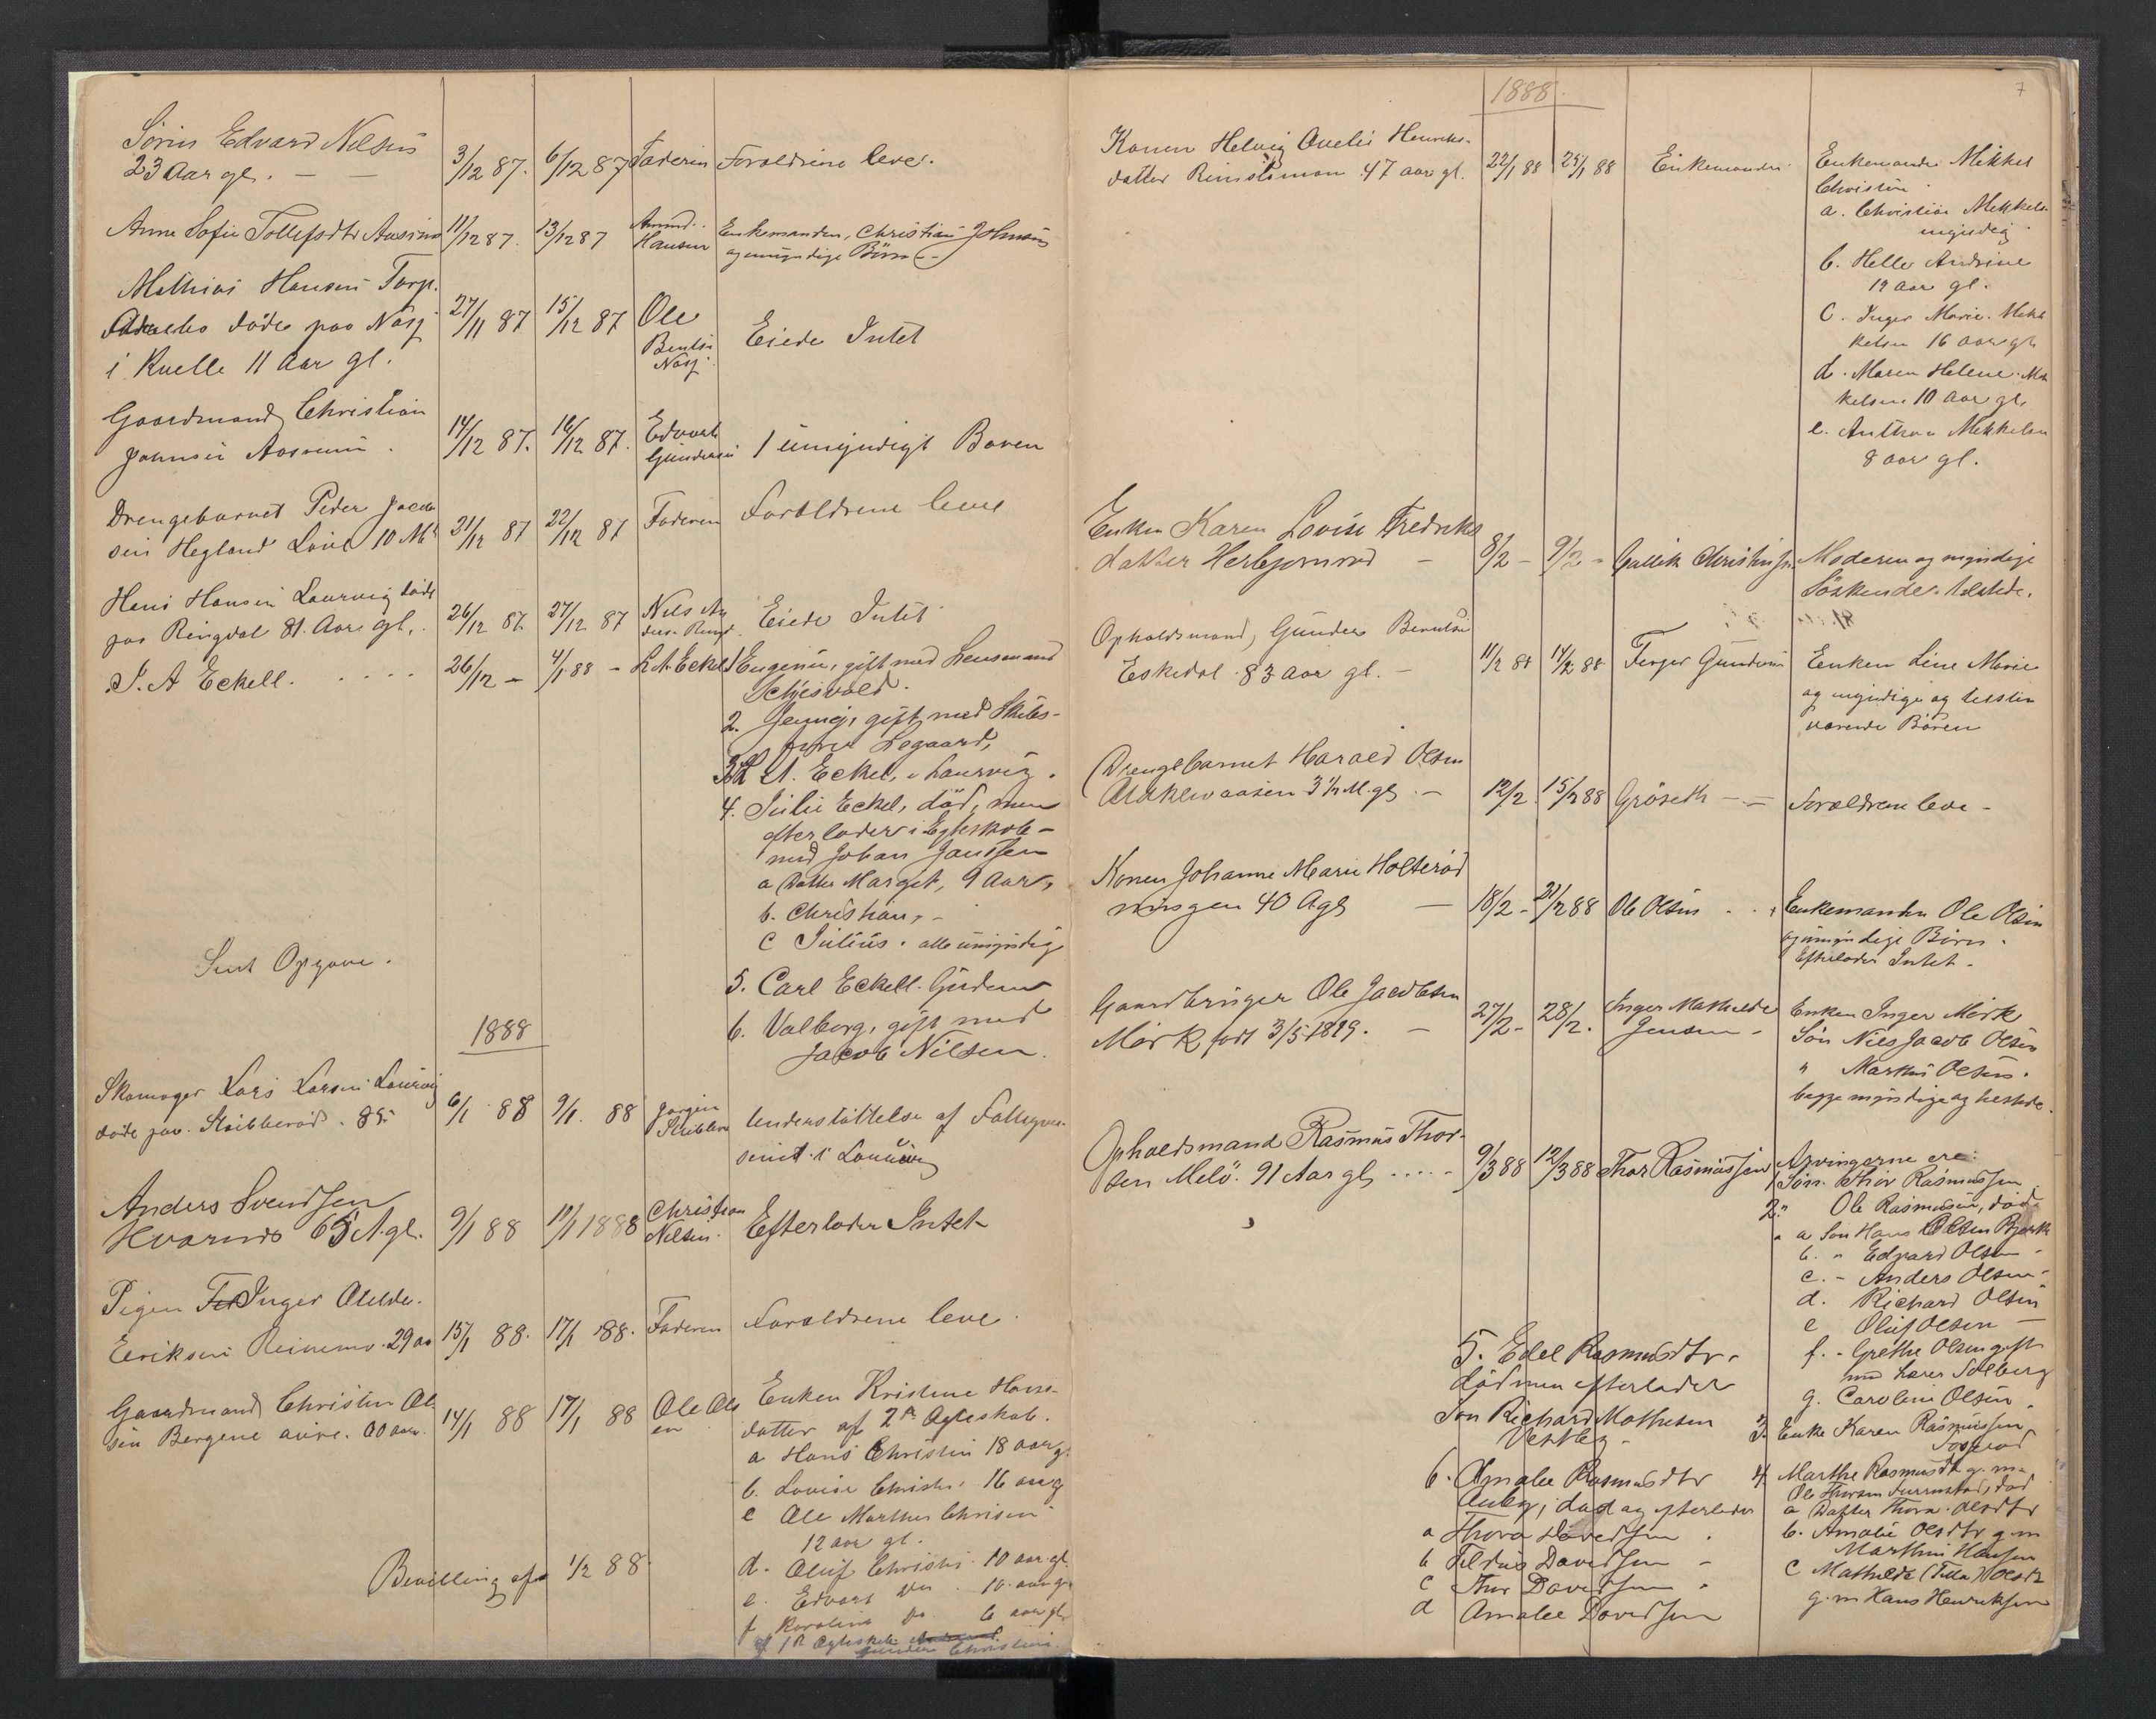 Sørin Edvard Nilsen
23 Aar gl. — —
3/12 87. 6/12 87 Faderen Forældrene lever.
Anne Sofie Tollefsdtr
11/12 87. 13/12 87
Amund
Hansen
Enkemanden, Christian Johnsen
og umyndige Börn
Mathias Hansen Torp.
døde paa Näsj
i Kvelle 11 Aar gl.
27/11 87 15/12 87
Ole
Bentsen
Näsj
Eiede Intet
Gaardmand Christian
Johnsen
14/12 87. 16/12 87.
Edvart
Gundersen
1 umyndigt Barn
Drengebarnet Peder Jacob
sen Hegland 10 Md
21/12 87 22/12 87 Faderen Forældrene leve
Hans Hansen Laurvig døde
paa Ringdal 81 Aar gl.
26/12 87. 27/12 87
Nils An
dersen Ringd.
Eiede Intet
S. A Eckell. . . . .
26/12 - 4/1 88 - L. A. Eckel
1 Eugenie, gift med Lensmand
2. Jenny, gift med Skibs-
fører Legaard,
3. L A. Eckel, i Laurvig.
4. Julie Eckel, död, men
efterlader i Egteskab -
med Johan Janssen
a Datter Marget, 9 Aar,
b. Christian, -
c Julius. alle umyndige
Sent Opgave.
5. Carl Eckell.
6. Valborg, gift med
Jacob Nilsen.
1888
Skomager Lars Larsen Laurvig
døde paa. 85
6/1 88 9/1. 88
Jørgen
Understöttelse af Fattigvæ-
senet i Laurvig
Anders Svendsen
65 A. gl.
9/1 88 10/1 1888
Christian
Nilsen.
Efterlader Intet
Pigen Inger
Eriksen 29 aa
15/1 88. 17/1 88. Faderen Forældrene leve
Gaardmand Christen Ol
sen Bergene 60 aar.
14/1 88 17/1 88
Ole Ols
en
Enken Kristine Hans-
datter af 2det Ægteskab.
a Hans Christen 18 aar g.
b. Lovise Christ. 16 aar g
c Ole Marthin Chrisen
12 aar gl.
d. Oluf Christ. 10 aar gl.
Bevilling af 1/2 88
e. Edvart do. 10. aar gl
f Karoline do. 6 aar gl.
af 1ste Ægteskab
Gunder Christen
1888. 7
Konen Helvig Hendriks-
datter 47 aar gl.
22/1 88 25/1 88 Enkemanden
Enkemanden Mikkel
Christen
a. Christian Mikkels.
myndig
b. Helle Andrine
19 aar gl.
c. Inger Marie. Mikk
kelsen 16 aar gl
d. Maren Helene. Mik
kelsen 10 Aar gl.
e. Anthon Mikkelsen
8 aar gl.
Enken Karen Lovise Fredriks
datter
8/2 - 9/2 -
Moderen og myndige
Söskende. telstede.
Opholdsmand, Gunder Berntsen
Eskedal 83 aar gl. -
11/2 88 14/2 88 Torger Gundersen
Enken Line Marie
og myndige og telste
værende Børn
Drengebarnet Harald Olsen
3 1/2 M. gl. -
12/2 15/2 88 Gröseth — Forældrene leve -
Konen Johanne Marie Holteröd
40 A gl —
18/2 - 21/2 88 Ole Olsen . .
Enkemanden Ole Olsen
og umyndige Börn.
Efterlader Intet.
Gaardbruger Ole Jacobsen
Mörk, født 3/5 1819. -
27/2 - 28/2.
Inger Mathilde
Jensen -
Enken Inger Mörk
Sön Nils Jacob Olsen
" Martin Olsen.
begge myndige og telstede.
Opholdsmand Rasmus Thor-
sen Melö. 91 Aar gl . . . . .
9/3 88 12/3 88 Thor Rasmussen
Arvingerne ere:
1 Sön. Thor Rasmussen
2. " Ole Rasmussen, död
a Sön Hans Olsen Bjerk
b. " Edvard Olsen
c. - Anders Olsen
d. Richard Olsen
e Oluf Olsen —
f. - Grethe Olsen gift
med Lars Solberg
g. Caroline Olsen.
3. Enke Karen Rasmussen
4 Marthe Rasmusdtr g. m.
Ole Thorsen Furrustad, død
a Datter Thora Olsdtr
b. Amalie Olsdtr g. m
Marthin Hansen
c Mathilde (Tilla) Olsdtr
g. m Hans Henriksen
5. Edel Rasmusdtr.
död men efterlader
Sön Richard Mathisen
Vestby -
6. Amalie Rasmusdtr
Auby, død og efterlader
a Thora Davidsen .
b Davidsen -
c Thor Davidsen "
d Amalie Davidsen